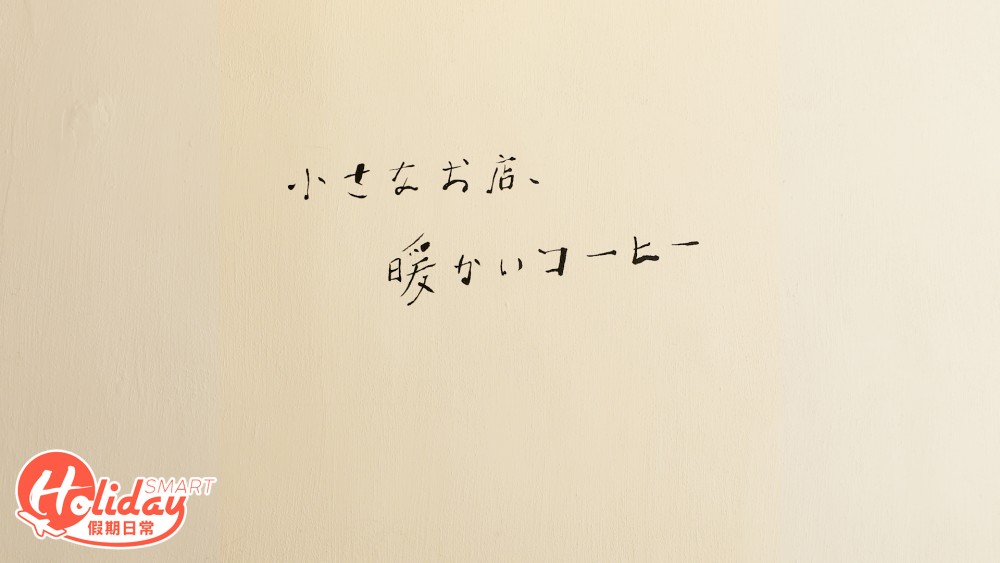 小さなお店、
暖かいコーヒー
Holiday SMART
假期日常